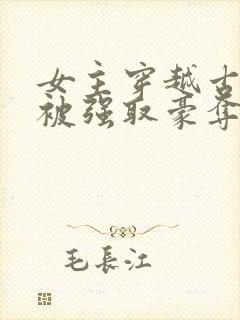 女主穿越古
被强取豪夺
毛長江